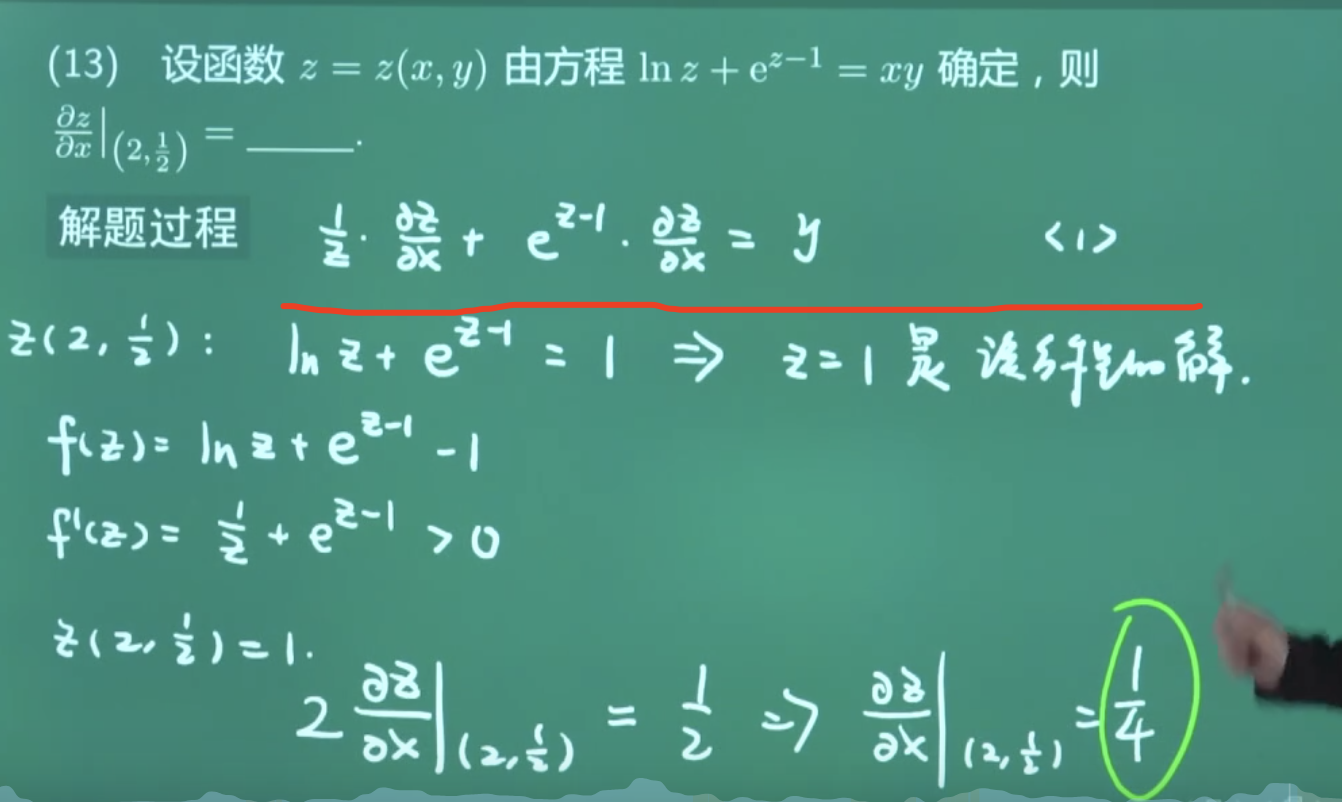 (13) 设函数 z = z(x, y) 由方程 ln z + e^{z-1} = xy 确定，则
∂z/∂x|_{(2, 1/2)} = ______.
解题过程
1/z · ∂z/∂x + e^{z-1} · ∂z/∂x = y <1>
z(2, 1/2) : ln z + e^{z-1} = 1 ⇒ z = 1 是 该方程的解.
f(z) = ln z + e^{z-1} - 1
f'(z) = 1/z + e^{z-1} > 0
z(2, 1/2) = 1.
2 ∂z/∂x|_{(2, 1/2)} = 1/2 ⇒ ∂z/∂x|_{(2, 1/2)} = 1/4